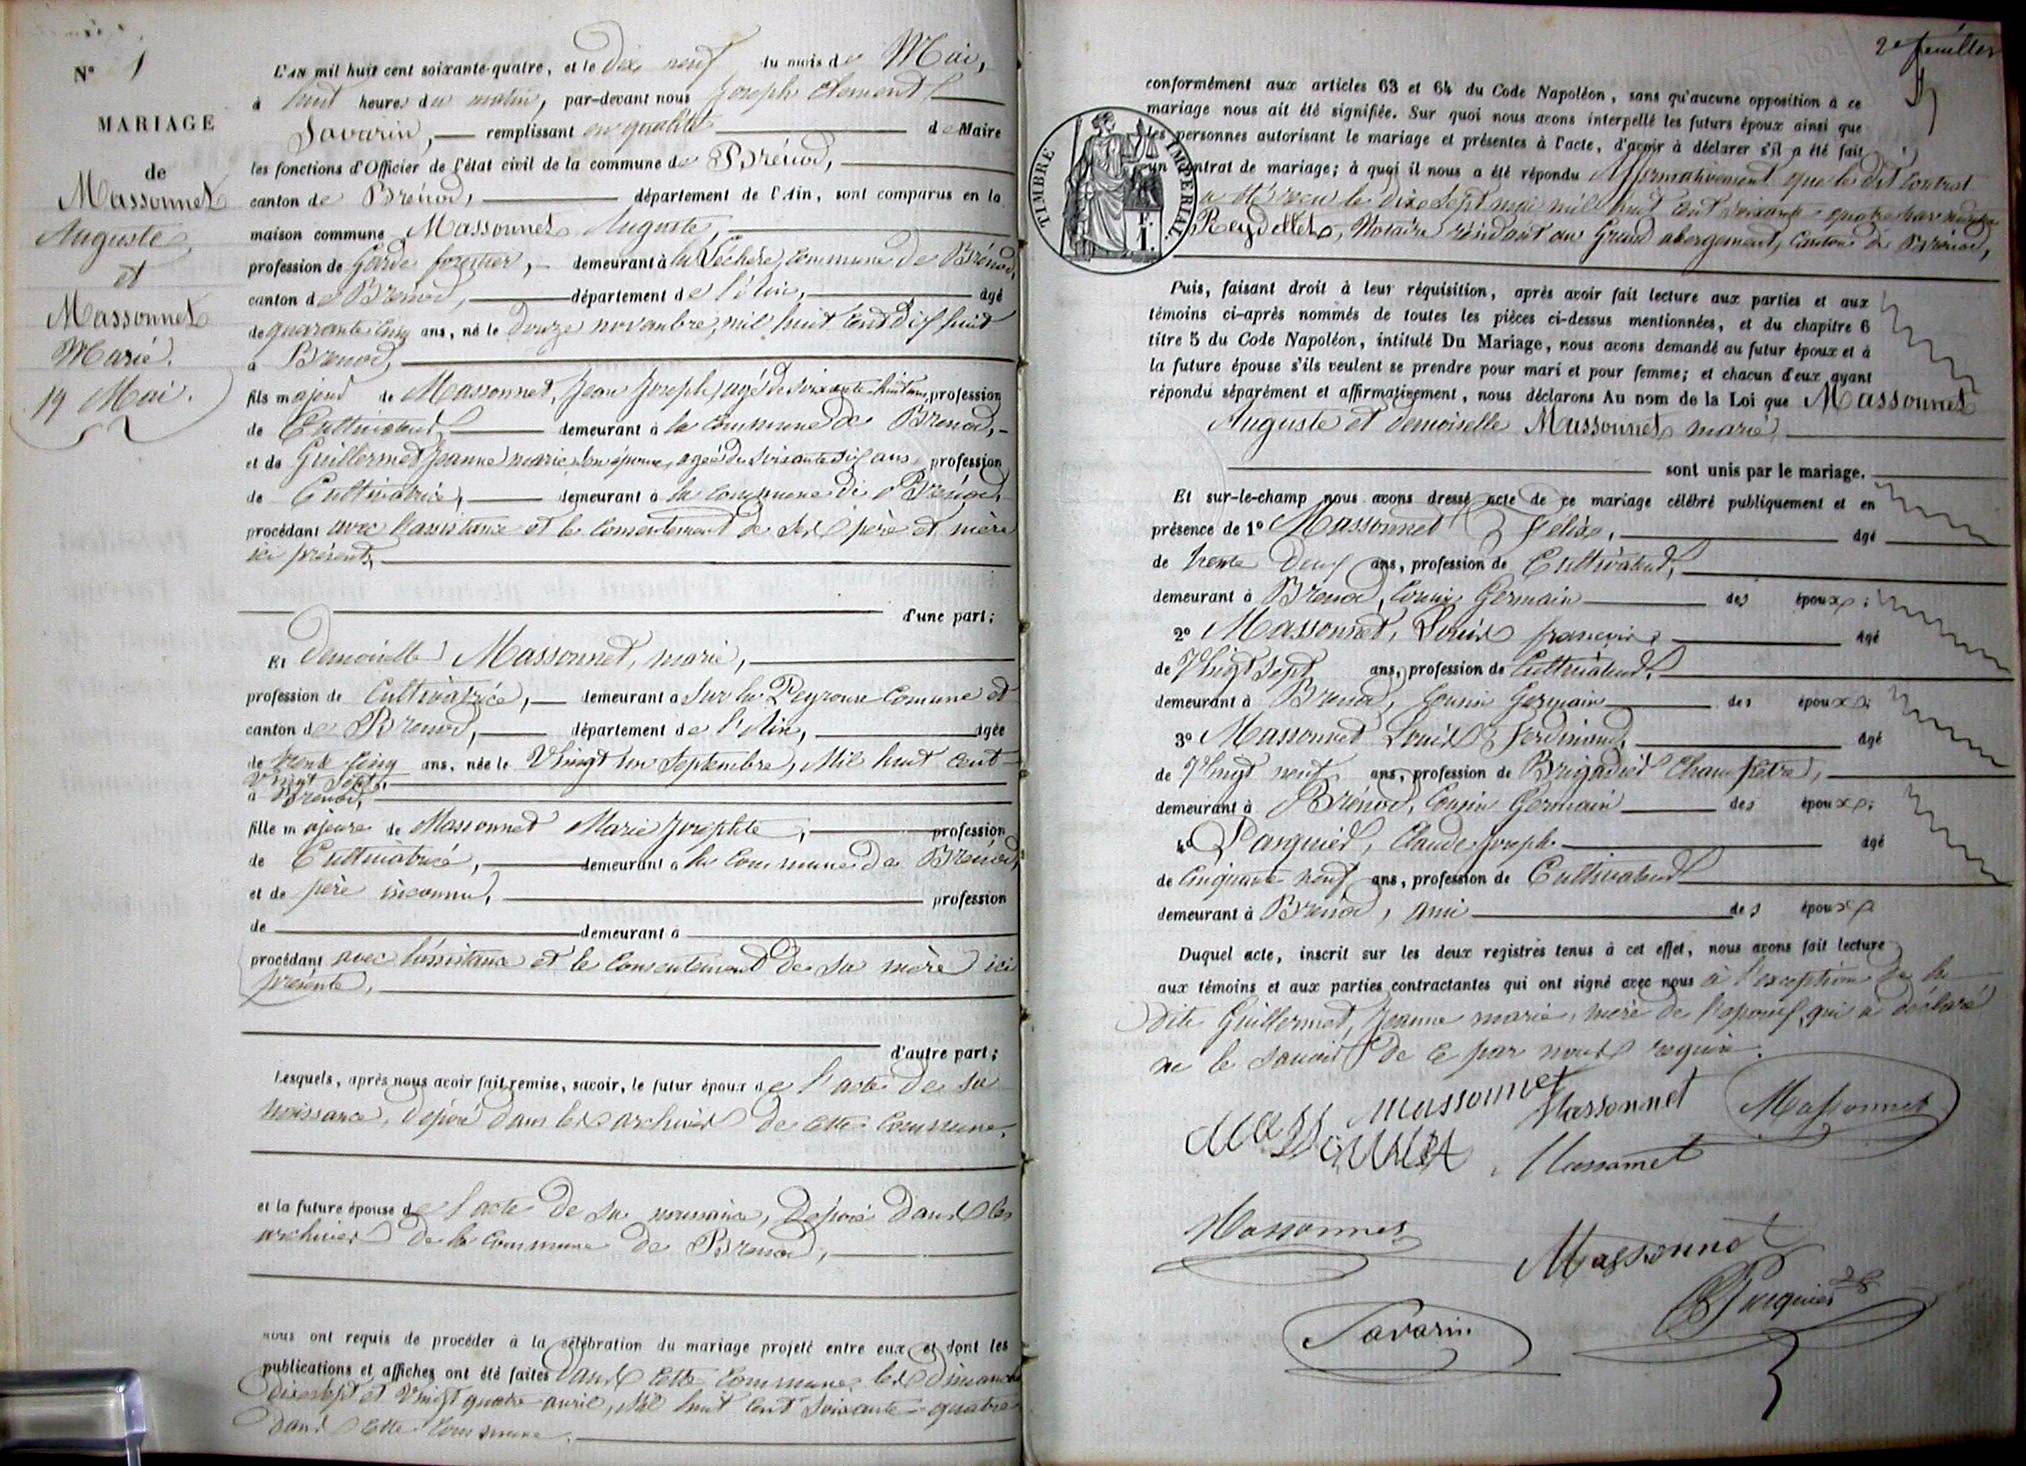 N° 1
MARIAGE
de
Massonnet
Auguste,
et
Massonnet
Marie.
19 Mai.
L'AN mil huit cent soixante-quatre, et le dix neuf du mois de Mai,
à huit heures du matin, par-devant nous Joseph Clement
Savarin, remplissant en qualité de Maire
les fonctions d'Officier de l'état civil de la commune de Brénod,
canton de Brénod, département de l'Ain, sont comparus en la
maison commune Massonnet Auguste,
profession de Garde forestier, demeurant à la Léchère, commune de Brénod,
canton de Brénod, département de l'Ain, âgé
de quarante cinq ans, né le douze novembre, mil huit cent dix huit
à Brenod,
fils majeur de Massonnet, Jean Joseph, agé de soixante huit ans, profession
de Cultivateur, demeurant à la commune de Brenod,
et de Guillermet Jeanne marie son épouse, agée de soixante dix ans, profession
de Cultivatrice, demeurant à la commune de Brénod,
procédant avec l'assistance et le consentement de ses père et mère
ici présents,
d'une part;
Et demoiselle Massonnet, marie,
profession de Cultivatrice, demeurant à Sur la Peyrouse Comune et
canton de Brenod, département de l'Ain, âgée
de trente cinq ans, née le Vhingt un Septembre, Mil huit cent
Vhingt Sept,
à Brénod,
fille majeure de Massonnet Marie Josephte, profession
de Cultivatrice, demeurant à la commune de Brénod,
et de père inconnu, profession
de demeurant à
procédant avec l'assistance et le consentement de sa mère ici
présente,
d'autre part;
Lesquels, après nous avoir fait remise, savoir, le futur époux de l'acte de sa
naissance, déposé dans les archives de cette Commune.
et la future épouse de l'acte de sa naissance, déposé dans les
archives de la commune de Brenod,
nous ont requis de procéder à la célébration du mariage projeté entre eux et dont les
publications et affiches ont été faites dans cette Commune les dimanche
dixsept et Vhingt quatre avril, Mil huit cent soixante-quatre
dans cette commune.
2e feuillet
conformément aux articles 63 et 64 du Code Napoléon, sans qu'aucune opposition à ce
mariage nous ait été signifiée. Sur quoi nous avons interpellé les futurs époux ainsi que
les personnes autorisant le mariage et présentes à l'acte, d'avoir à déclarer s'il a été fait
un contrat de mariage; à quoi il nous a été répondu Affirmativement que le dit Contrat
a été reçu le dix sept mai mil huit cent soixante-quatre par
Reydellet, Notaire résidant au Grand abergement, Canton de Brénod,
TIMBRE IMPÉRIAL.
1 F.
Puis, faisant droit à leur réquisition, après avoir fait lecture aux parties et aux
témoins ci-après nommés de toutes les pièces ci-dessus mentionnées, et du chapitre 6
titre 5 du Code Napoléon, intitulé Du Mariage, nous avons demandé au futur époux et à
la future épouse s'ils veulent se prendre pour mari et pour femme; et chacun d'eux ayant
répondu séparément et affirmativement, nous déclarons Au nom de la Loi que Massonnet
Auguste et demoiselle Massonnet marie,
sont unis par le mariage.
Et sur-le-champ nous avons dressé acte de ce mariage célébré publiquement et en
présence de 1° Massonnet Felix, âgé
de trente deux ans, profession de Cultivateur,
demeurant à Brenod, Cousin Germain des époux;
2° Massonnet, Louis françois, âgé
de Vhingt sept ans, profession de Cultivateur,
demeurant à Brenod, Cousin Germain des époux;
3° Massonnet Louis Ferdinand, âgé
de Vhingt neuf ans, profession de Brigadier Champêtre,
demeurant à Brénod, Cousin Germain des époux;
4° Pasquier, Claude Joseph âgé
de Cinquante neuf ans, profession de Cultivateur
demeurant à Brénod, ami des époux
Duquel acte, inscrit sur les deux registres tenus à cet effet, nous avons fait lecture
aux témoins et aux parties contractantes qui ont signé avec nous à l'exception de la
dite Guillermet, Jeanne marie, mère de l'époux, qui a déclaré
ne le savoir de ce par nous requis.
Massonnet Massonnet Massonnet
Massonnet Massonnet
Massonnet
Massonnet
Pasquier
Savarin